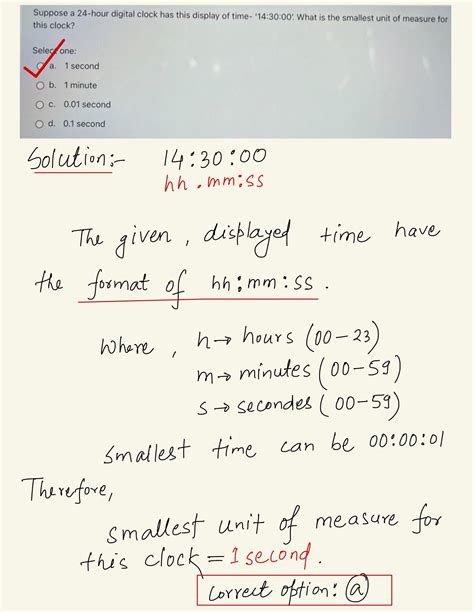 Suppose a 24-hour digital clock has this display of time- '14:30:00'. What is the smallest unit of measure for
this clock?
Select one:
a. 1 second
b. 1 minute
c. 0.01 second
d. 0.1 second
Solution:- 14:30:00
hh.mm:ss
The given, displayed time have
the format of hh:mm:ss.
Where, h→ hours (00-23)
m→ minutes (00-59)
s→ secondes (00-59)
smallest time can be 00:00:01
Therefore,
smallest unit of measure for
this clock = 1 second.
correct option: a